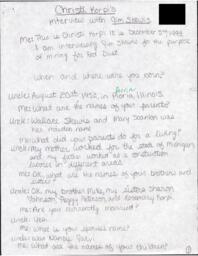 Christi Korpi's
interview with Jim Skewis
Me: This is Christi Korpi it is December 5th 1999
I am interviewing Jim Skewis for the purpose
of mining for Red Dust
When and where were you born?
Uncle: August 20th 1952, in Peoria, Illinois
Me: What are the names of your parents?
Uncle: Wallace Skewis and Mary Scanlon was
her maiden name
Me: What did your parents do for a living?
Uncle: My mother worked for the state of Michigan
and my father worked as a construction
in different areas
Me: OK, what are the names of your brothers and
sisters?
Uncle: OK, my brother Mike, my sisters Sharon
Johnson, Peggy Peterson, and Rosemary Korpi
Me: Are you currently married?
Uncle: Yes.
Me: What is your spouses name?
Uncle: was Nancy
Me: What are the names of your children?